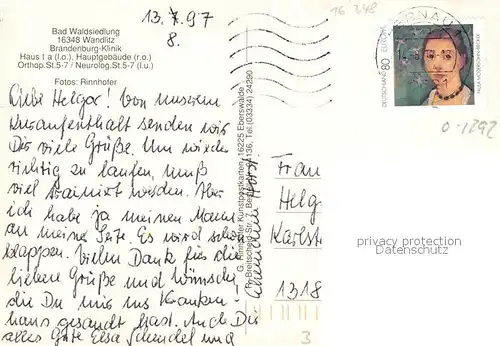 16 348
13. 7. 97
8.
Bad Waldsiedlung
16348 Wandlitz
Brandenburg-Klinik
Haus I a (l.o.), Hauptgebäude (r.o.)
Orthop.St.5-7 / Neurolog.St.5-7 (l.u.)
Fotos: Rinnhofer
BERNAU
DEUTSCHLAND 80 EUROPA
PAULA MODERSOHN-BECKER
0-1292
Liebe Helga! Von unserem
Kuraufenthalt senden wir
Dir viele Grüße. Um wieder
richtig zu laufen, muß
viel trainiert werden. Aber
ich habe ja meinen Mann
an meine Seite. Es wird schon
klappen. Vielen Dank für die
lieben Grüße und Wünsche,
die Du mir ins Kranken-
haus gesandt hast. Auch Dir
alles Gute Elsa Schendel und
Horst
G. Rinnhofer Kunstpostkarten, 16225 Eberswalde
Tel.(03334) 24290
Frau
Helg
Karlst
1318
privacy protection
Datenschutz
3